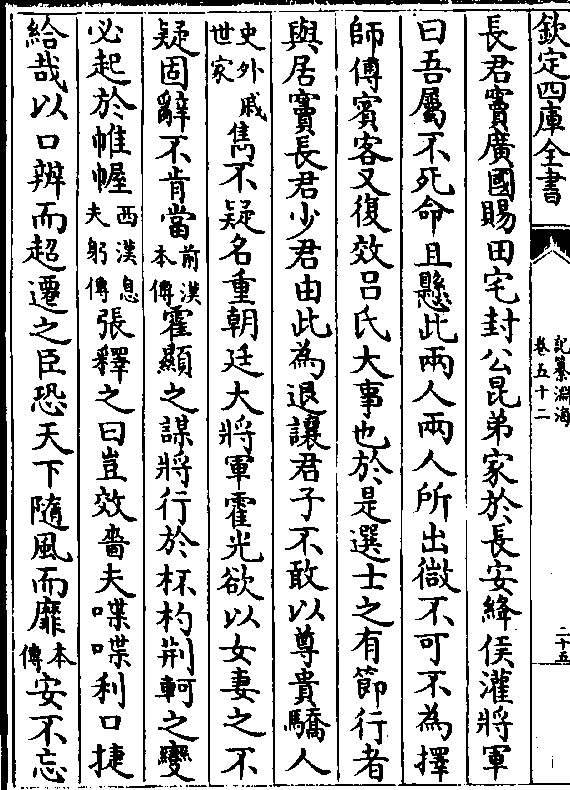 欽定四庫全書
記纂淵海
卷五十二
二十五
長君竇廣國賜田宅封公昆弟家於長安絳侯灌將軍
曰吾屬不死命且懸此兩人兩人所出微不可不為擇
師傅賓客又復效呂氏大事也於是選士之有節行者
與居竇長君少君由此為退讓君子不敢以尊貴驕人
史外戚世家雋不疑名重朝廷大將軍霍光欲以女妻之不
疑固辭不肯當前漢本傳霍顯之謀將行於杯杓荆軻之變
必起於帷幄西漢息夫躬傳張釋之曰豈效嗇夫喋喋利口捷
給哉以口辨而超遷之臣恐天下隨風而靡本傳安不忘